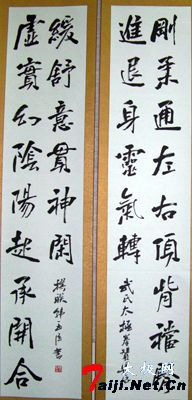 剛柔通左右頂背襠
進退身靈氣轉
武氏太極拳
虛實幻陰陽起承開合
緩舒意貫神閑
太极网
Taiji.Net.Cn